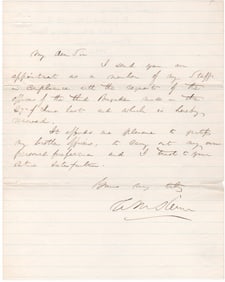 My dear Sir
I send you an
appointment as a member of my Staff
in compliance with the request of the
officers of the Brigade made on the
and which is hereby
It affords me pleasure to gratify
my brother officers, to carry out my own
personal preference and I trust to your
entire satisfaction.
Yours very truly